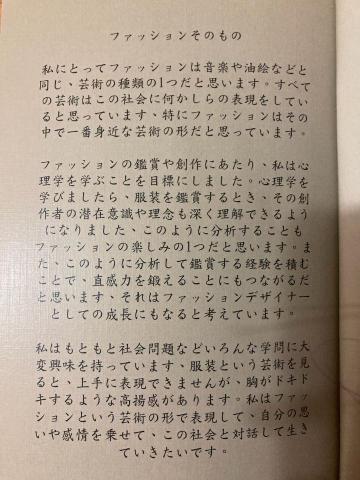 ファッションそのもの
私にとってファッションは音楽や油絵などと
同じ、芸術の種類の1つだと思います。すべて
の芸術はこの社会に何かしらの表現をしてい
ると思っています、特にファッションはその
中で一番身近な芸術の形だと思っています。
ファッションの鑑賞や創作にあたり、私は心
理学を学ぶことを目標にしました。心理学を
学びましたら、服装を鑑賞するとき、その創
作者の潜在意識や理念も深く理解できるよう
になりました、このように分析することも
ファッションの楽しみの1つだと思います。ま
た、このように分析して鑑賞する経験を積む
ことで、直感力を鍛えることにもつながるだ
と思います、それはファッションデザイナー
としての成長にもなると考えています。
私はもともと社会問題などいろんな学問に大
変興味を持っています、服装という芸術を見
ると、上手に表現できませんが、胸がドキド
キするような高揚感があります。私はファッ
ションという芸術の形で表現して、自分の思
いや感情を乗せて、この社会と対話して生き
ていきたいです。